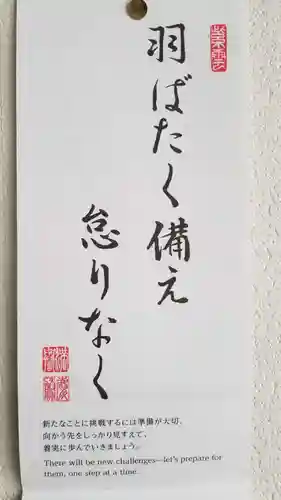 羽ばたく備え
怠りなく
新たなことに挑戦するには準備が大切。
向かう先をしっかり見すえて、
着実に歩んでいきましょう。
There will be new challenges—let's prepare for
them, one step at a time.